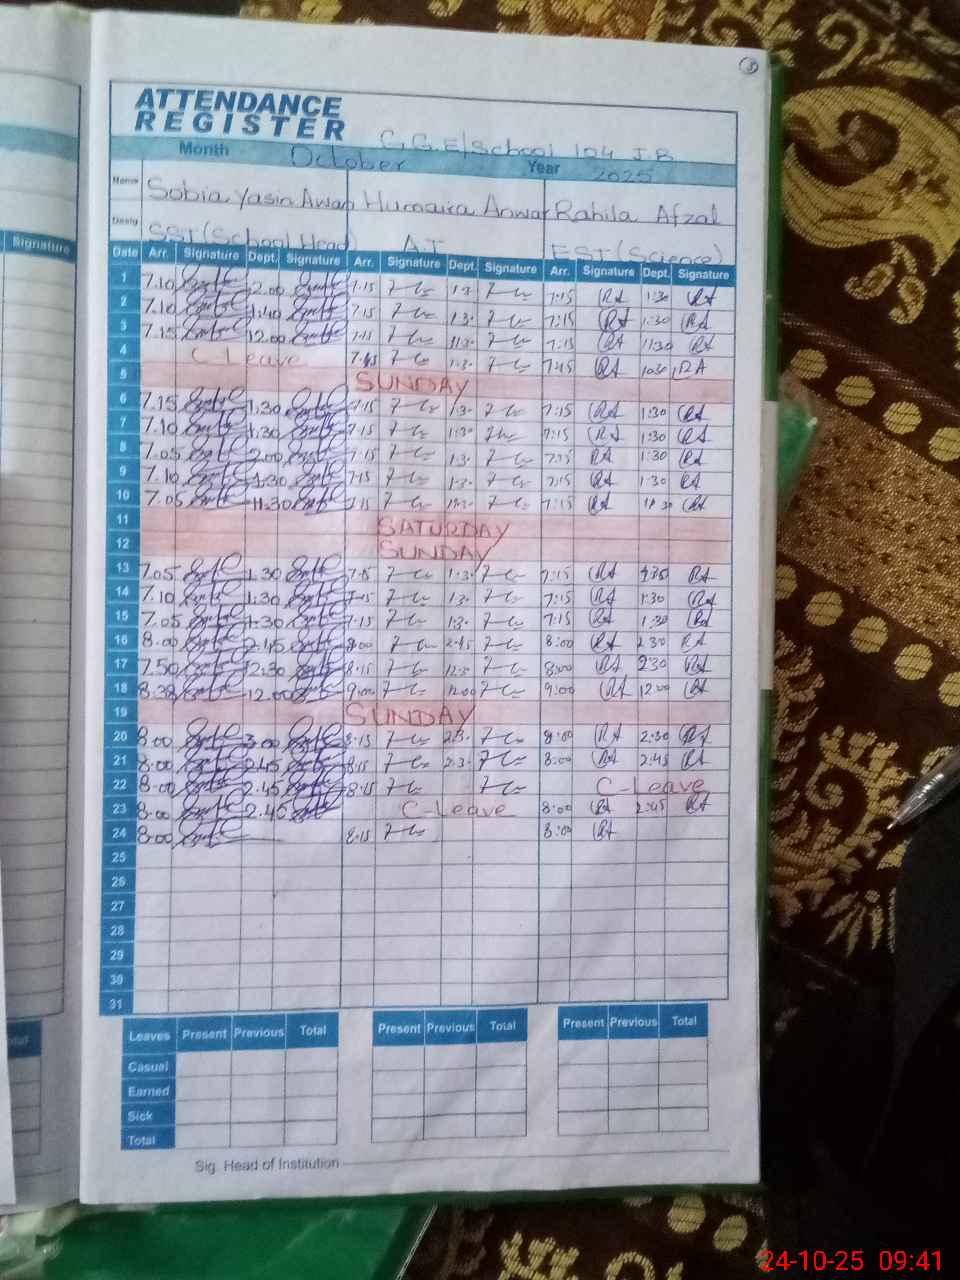 3
ATTENDANCE
REGISTER
G.G.E/School 104 J.B
Month October Year 2025
Name Sobia Yasin Awan Humaira Anwar Rahila Afzal
Desig. SST (School Head) A.T EST (Science)
Signature
Date Arr. Signature Dept. Signature Arr. Signature Dept. Signature Arr. Signature Dept. Signature
1 7.10 2.00 7.15 7:15 RA 1:30 RA
2 7.10 1.40 7.15 1.3. 7:15 RA 1:30 RA
3 7.15 12.00 11.3. 7:15 RA 11:30 RA
4 C Leave 1.3. RA RA
5 SUNDAY
6 7.15 1.30 7.15 1.3. 7:15 RA 1:30 RA
7 7.10 1.30 7.15 1.30 7:15 RA 1:30 RA
8 7.05 2.00 7.15 1.3. 7:15 RA 1:30 RA
9 7.10 1.30 7.15 1.3. 7:15 RA 1:30 RA
10 7.05 11.30 7.15 7:15 RA 11 30 RA
11 SATURDAY
12 SUNDAY
13 7.05 1.30 1.3. 7:15 RA RA
14 7.10 1.30 1.3. 7:15 RA 1:30 RA
15 7.05 1.30 7.15 1.3. 7:15 RA 1:30 RA
16 8.00 2.45 8.00 2.45 8:00 RA 2 30 RA
17 7.50 12.30 8.15 12.3. 8:00 RA RA
18 8.38 12.00 9.00 12.00 9:00 RA 12:00 RA
19 SUNDAY
20 8.00 3.00 8.15 2.3. 8:00 RA 2:30 RA
21 8.00 2.45 8.15 2.3. 8:00 RA 2:45 RA
22 8.00 2.45 8.15 C-Leave
23 8.00 2.45 C-Leave 8:00 RA 2:45 RA
24 8.00 8.15 8:00 RA
25
26
27
28
29
30
31
Leaves Present Previous Total Present Previous Total Present Previous Total
Casual
Earned
Sick
Total
Sig. Head of Institution
24-10-25 09:41